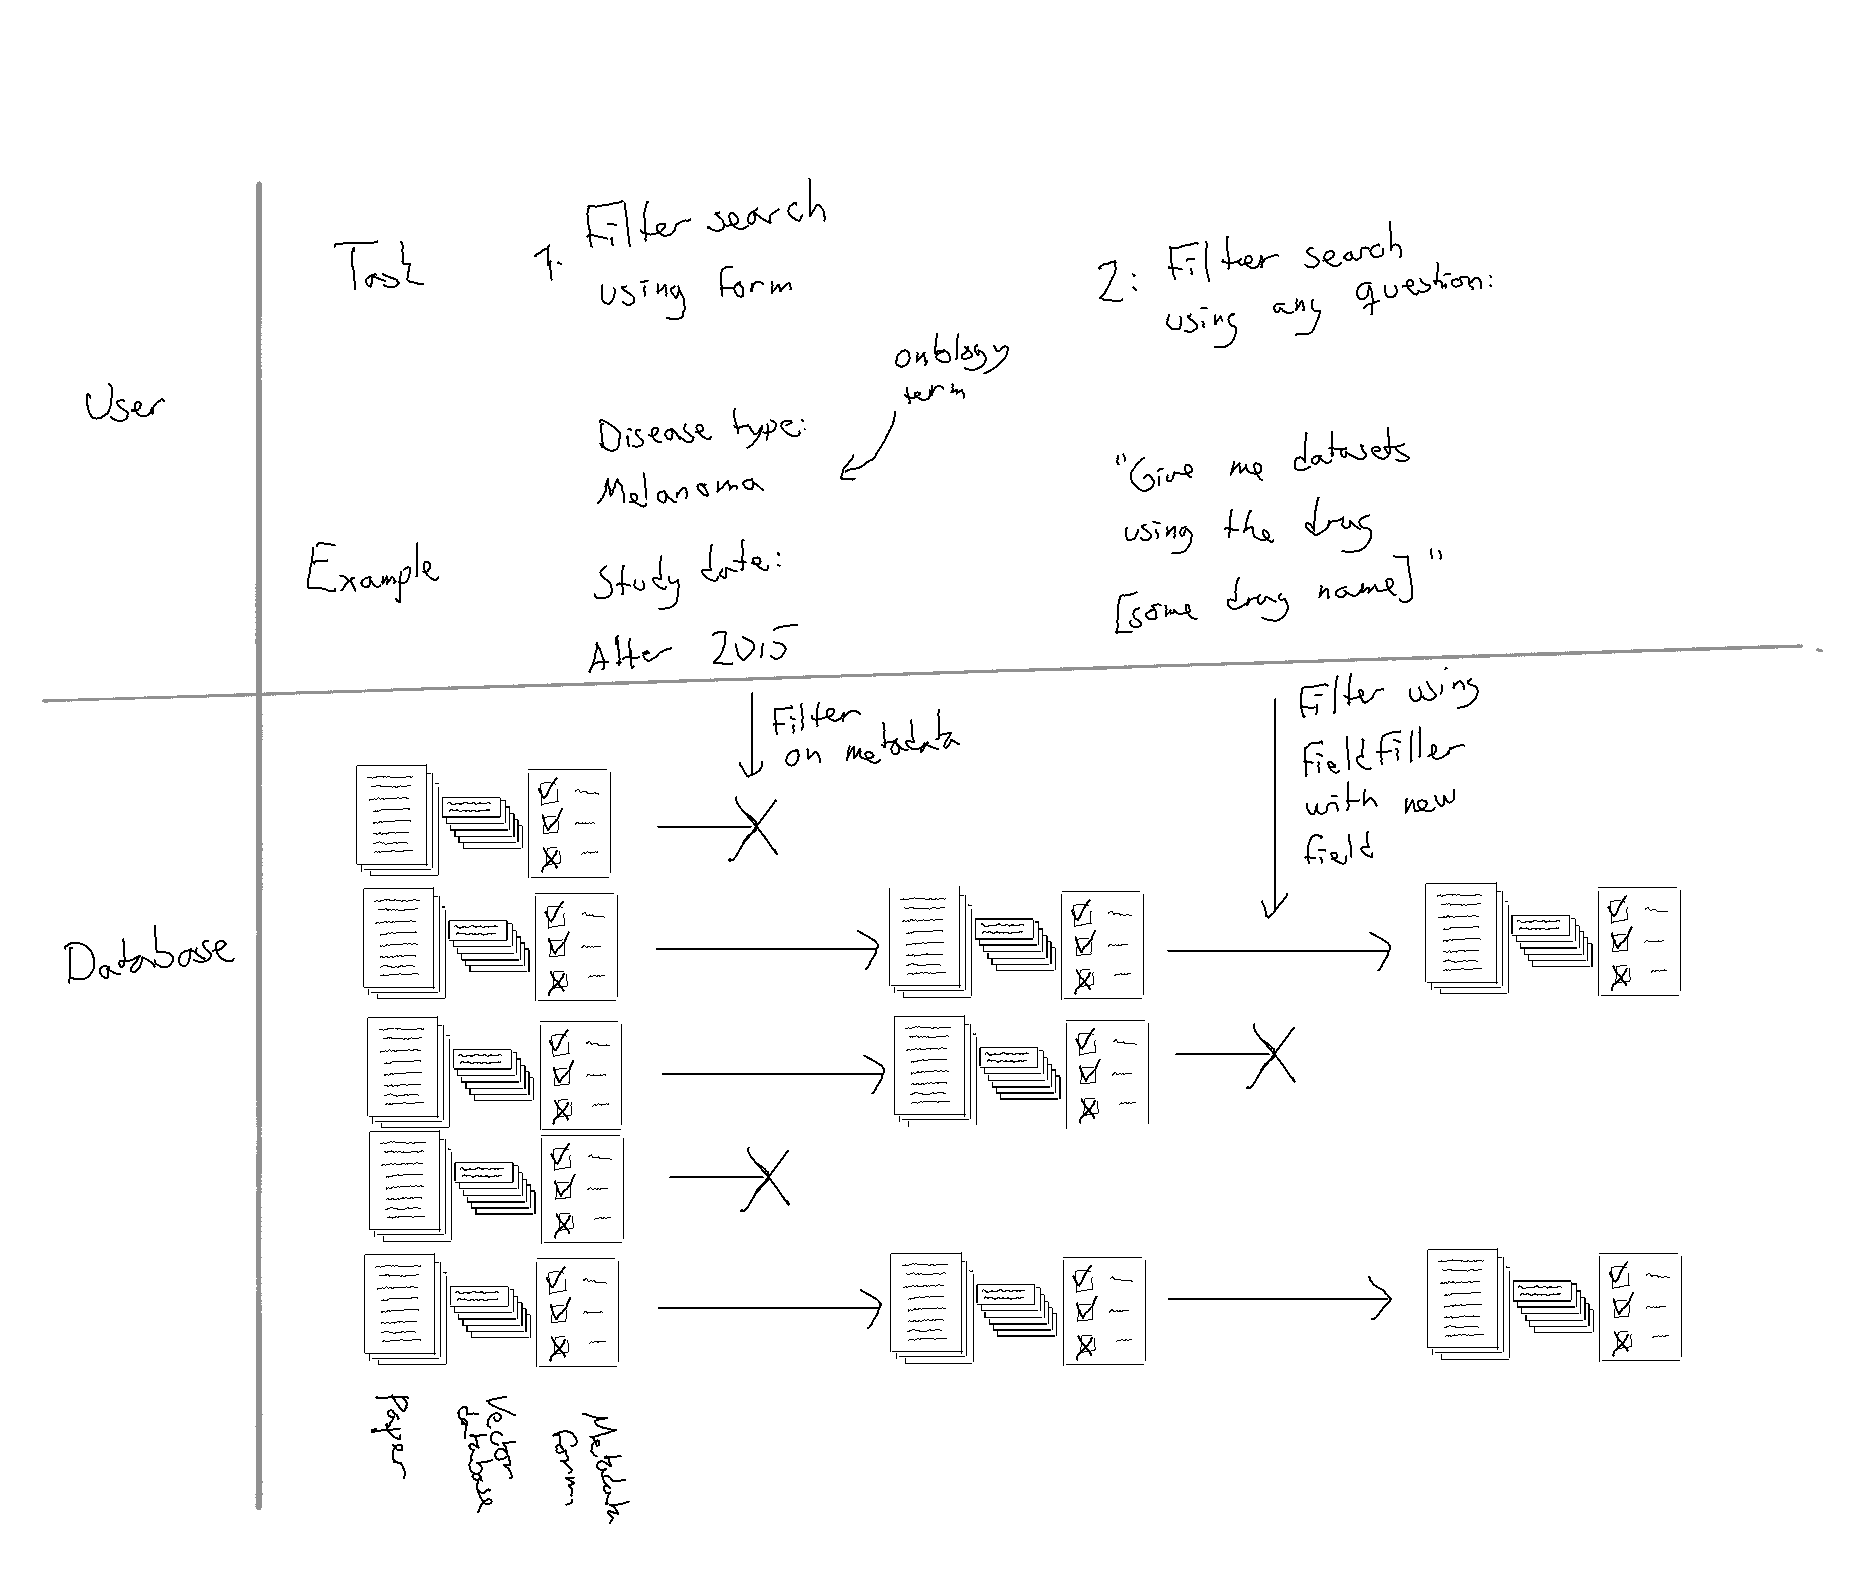 Task
1. Filter search
using form
2: Filter search
using any question:
User
ontology
term
Disease type:
Melanoma
Example
Study date:
After 2015
"Give me datasets
using the drug
[some drug name]"
Filter
on metadata
Filter using
FieldFiller
with new
field
Database
Paper
Vector
database
Metadata
form